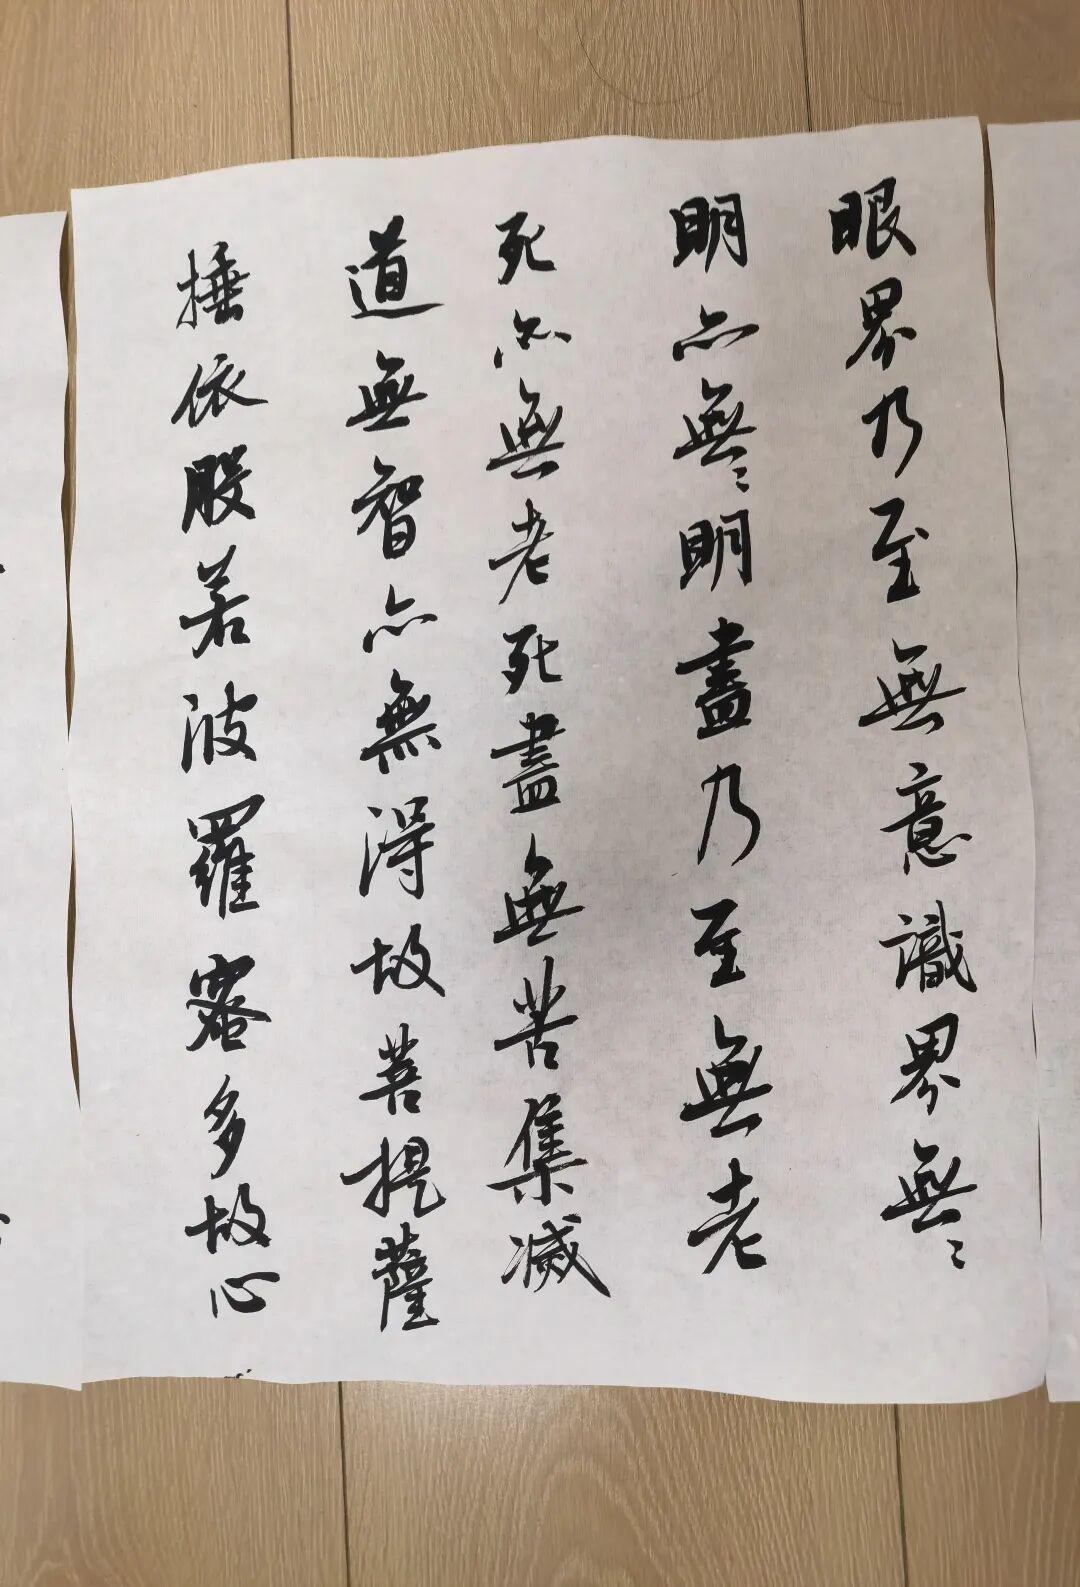 眼界乃至無意識界無〻
明亦無〻明盡乃至無老
死亦無老死盡無苦集滅
道無智亦無得故菩提薩
埵依般若波羅蜜多故心